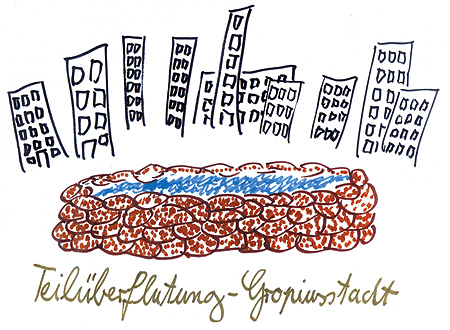 Teilüberflutung-Gropiusstadt